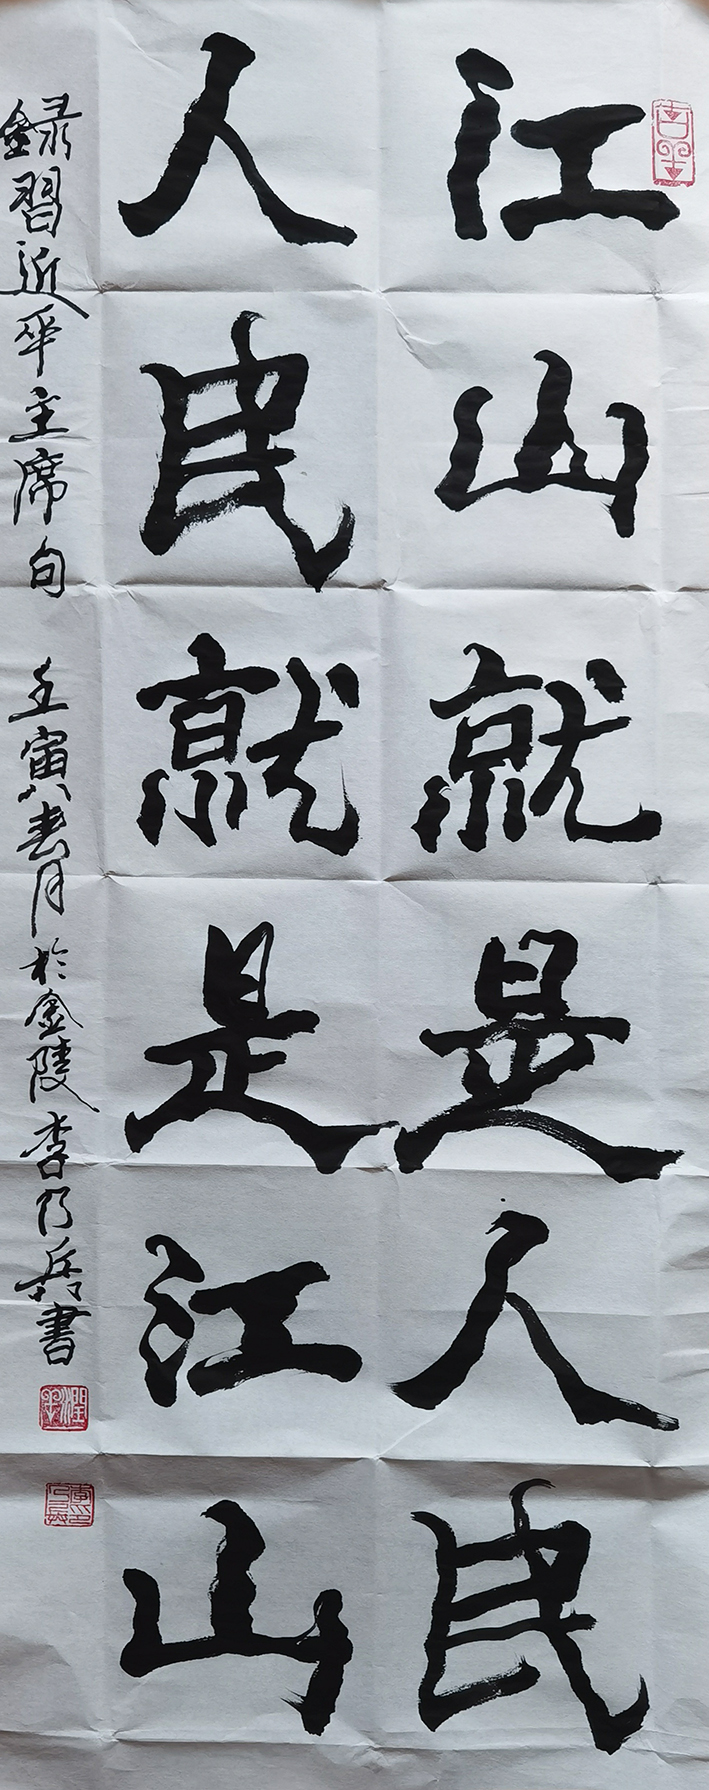 江山就是人民
人民就是江山
録習近平主席句 壬寅八春月於金陵李乃兵書